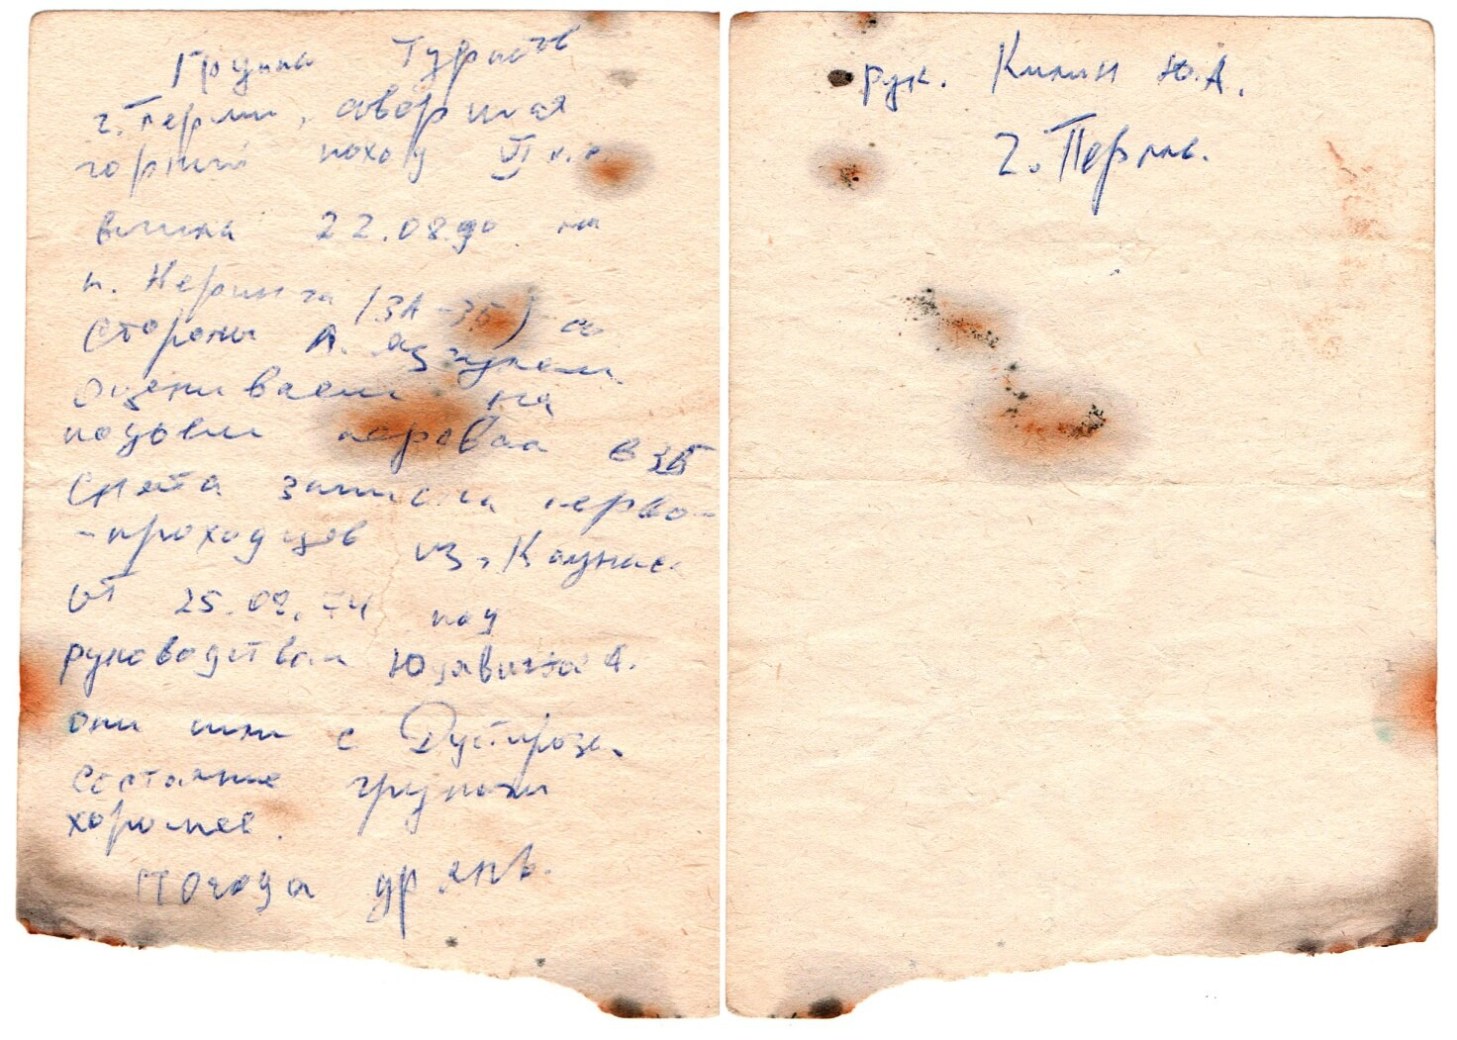 Группа туристов
г. Перми, соверша я
горный поход VI к.с.
вышла 22.08.90 на
п. Неринга (3А-3Б) со
стороны л.
оцениваем на
подъём перевал в 3Б
Снята записка перво-
-проходцев из г. Каунас
от 25.08.74 под
руководством А.
они шли с Дустироза.
Состояние группы
хорошее.
Погода дрянь.
рук. Килин Ю.А.
г. Пермь.